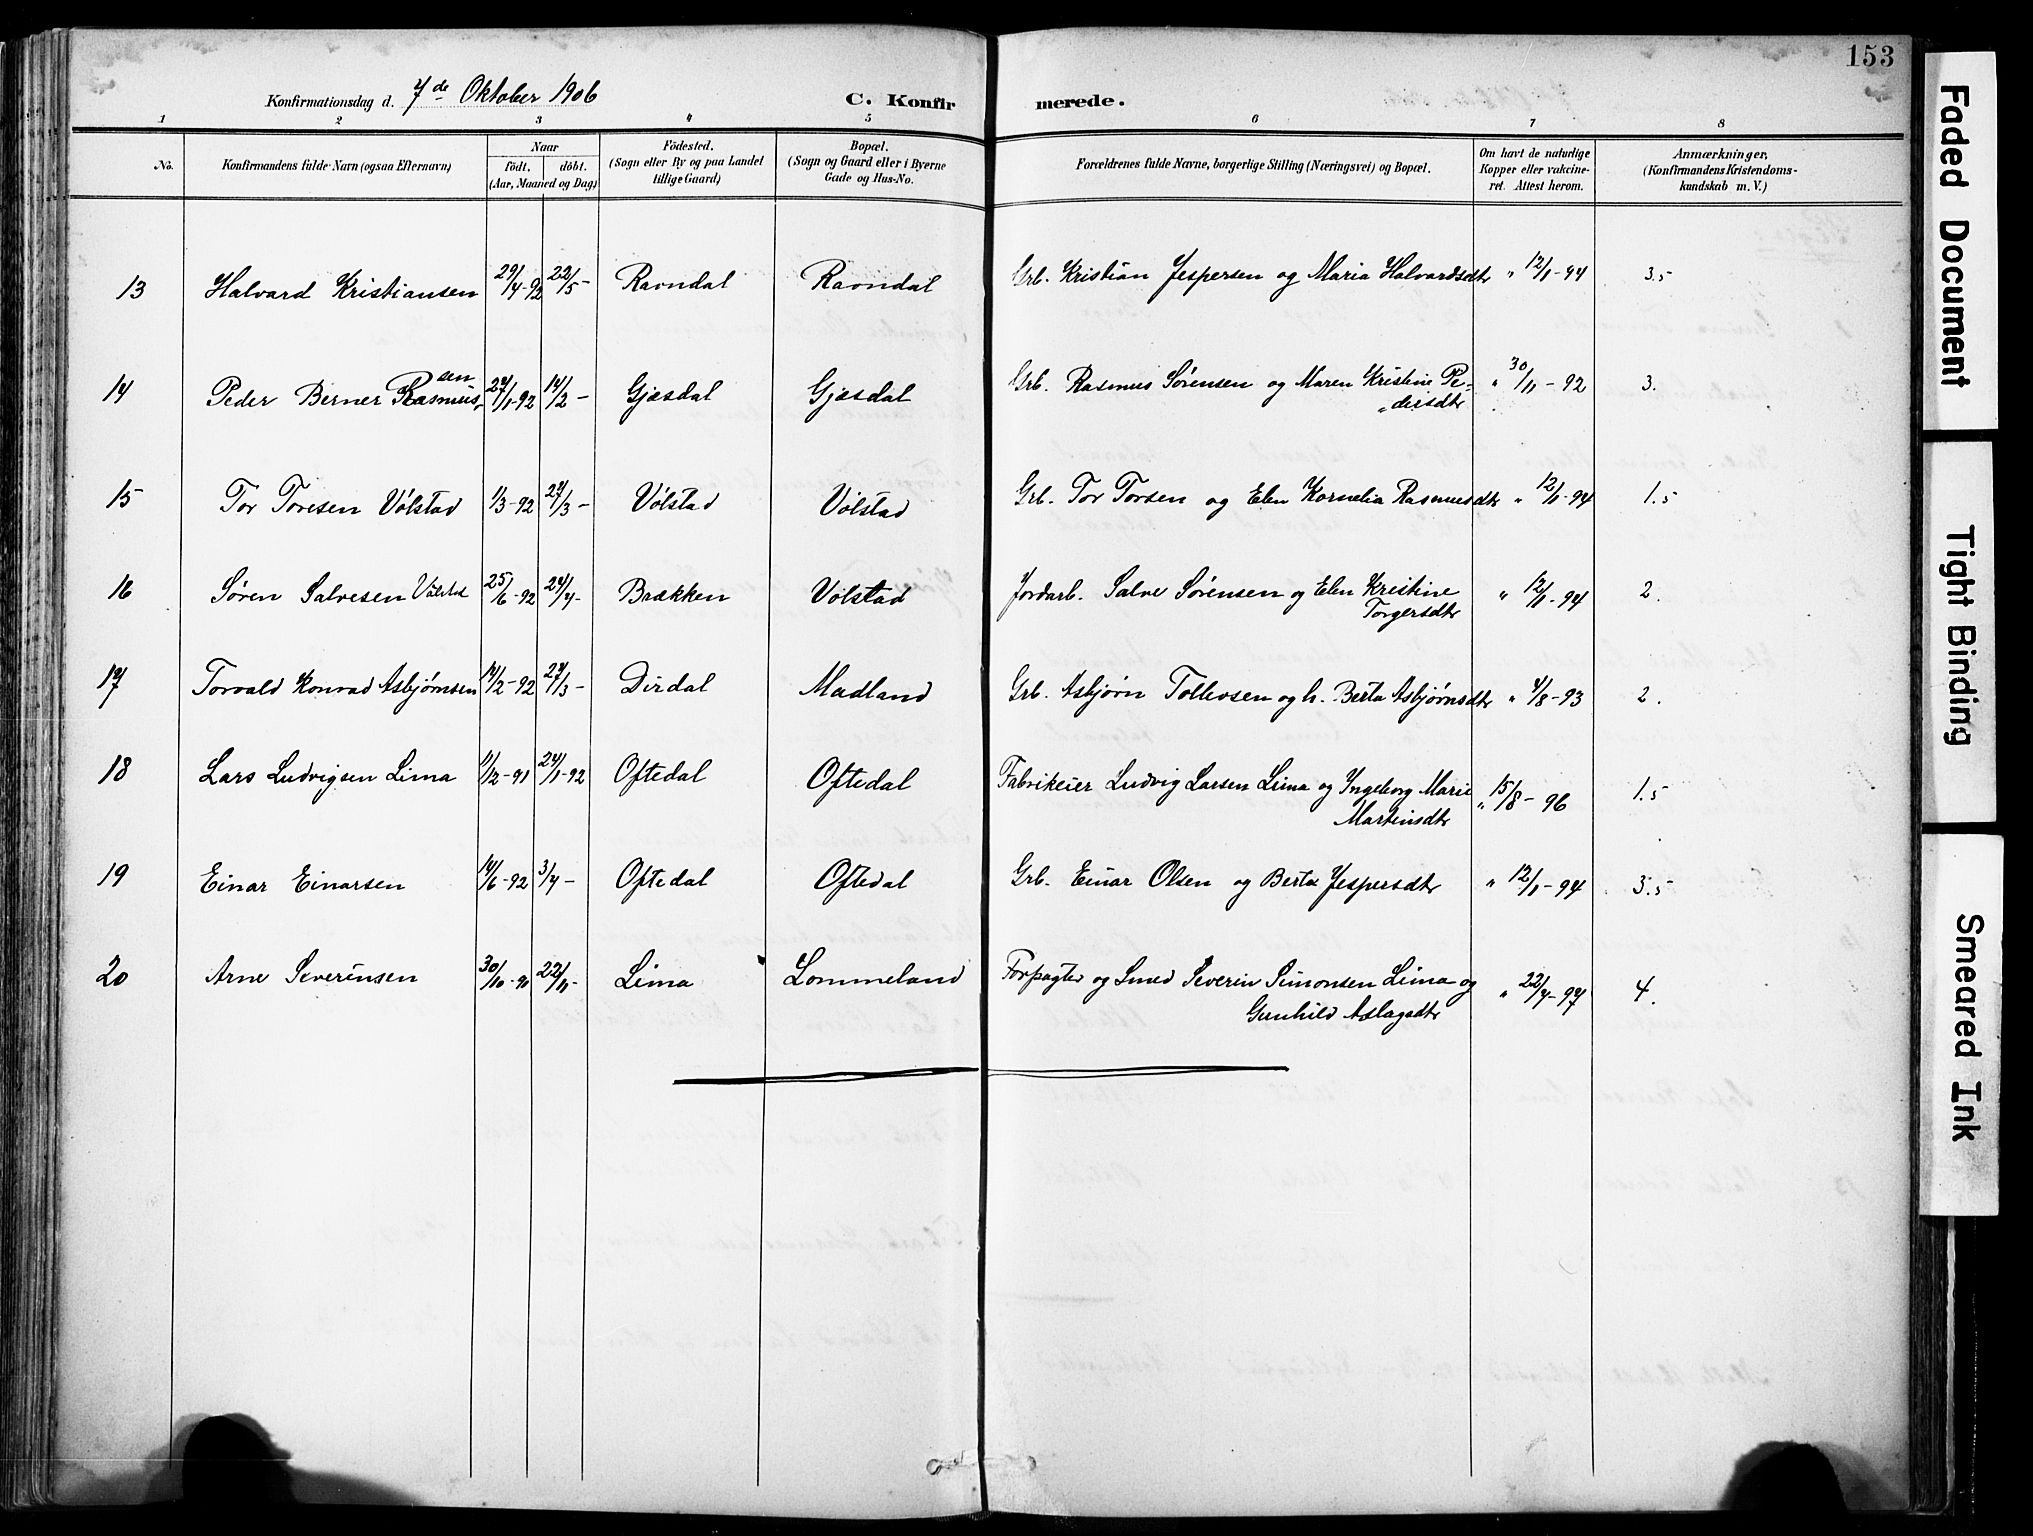 153
Konfirmationsdag d. 7de Oktober 1906 C. Konfirmerede.
1 2 3 4 5 6 7 8
No. Konfirmandens fulde Navn (ogsaa Efternavn) Naar født. døbt. (Aar, Maaned og Dag) Fødested. (Sogn eller By og paa Landet tillige Gaard) Bopæl. (Sogn og Gaard eller i Byerne Gade og Hus-No. Forældrenes fulde Navne, borgerlige Stilling (Næringsvei) og Bopæl. Om havt de naturlige Kopper eller vakcineret. Attest herom. Anmærkninger, (Konfirmandens Kristendomskundskab m. V.)
13 Halvard Kristiansen 29/4-92 22/5- Ravndal Ravndal Grb. Kristian Jespersen og Maria Halvardsdtr " 12/1-94 3.5
14 Peder Berner Rasmussen 27/1-92 14/2- Gjæsdal Gjæsdal Grb. Rasmus Sørensen og Maren Kristine Pedersdtr " 30/11-92 3.
15 Tor Toresen Vølstad 1/3-92 27/3- Vølstad Vølstad Grb. Tor Torsen og Elen Kornelia Rasmusdtr " 12/1-94 1.5
16 Søren Salvesen Vølstad 25/6-92 24/7- Brækken Vølstad Jordarb. Salve Sørensen og Elen Kristine Torgersdtr " 12/1-94 2.
17 Torvald Konrad Asbjørnsen 14/2-92 27/3- Dirdal Madland Grb. Asbjørn Tollevsen og h. Berta Asbjørnsdtr " 4/8-93 2.
18 Lars Ludvigsen Lima 11/12-91 24/1-92 Oftedal Oftedal Fabrikeier Ludvig Larsen Lima og Ingeborg Marie Martinsdtr " 15/8-96 1.5
19 Einar Einarsen 14/6-92 3/7- Oftedal Oftedal Grb. Einar Olsen og Berta Jespersdtr " 12/1-94 3.5
20 Arne Severinsen 30/10-91 22/11- Lima Lommeland Forpagter og Smed Severin Simonsen Lima og Gunhild Aslagsdtr " 22/7-97 4.
Faded Document
Tight Binding
Smeared Ink